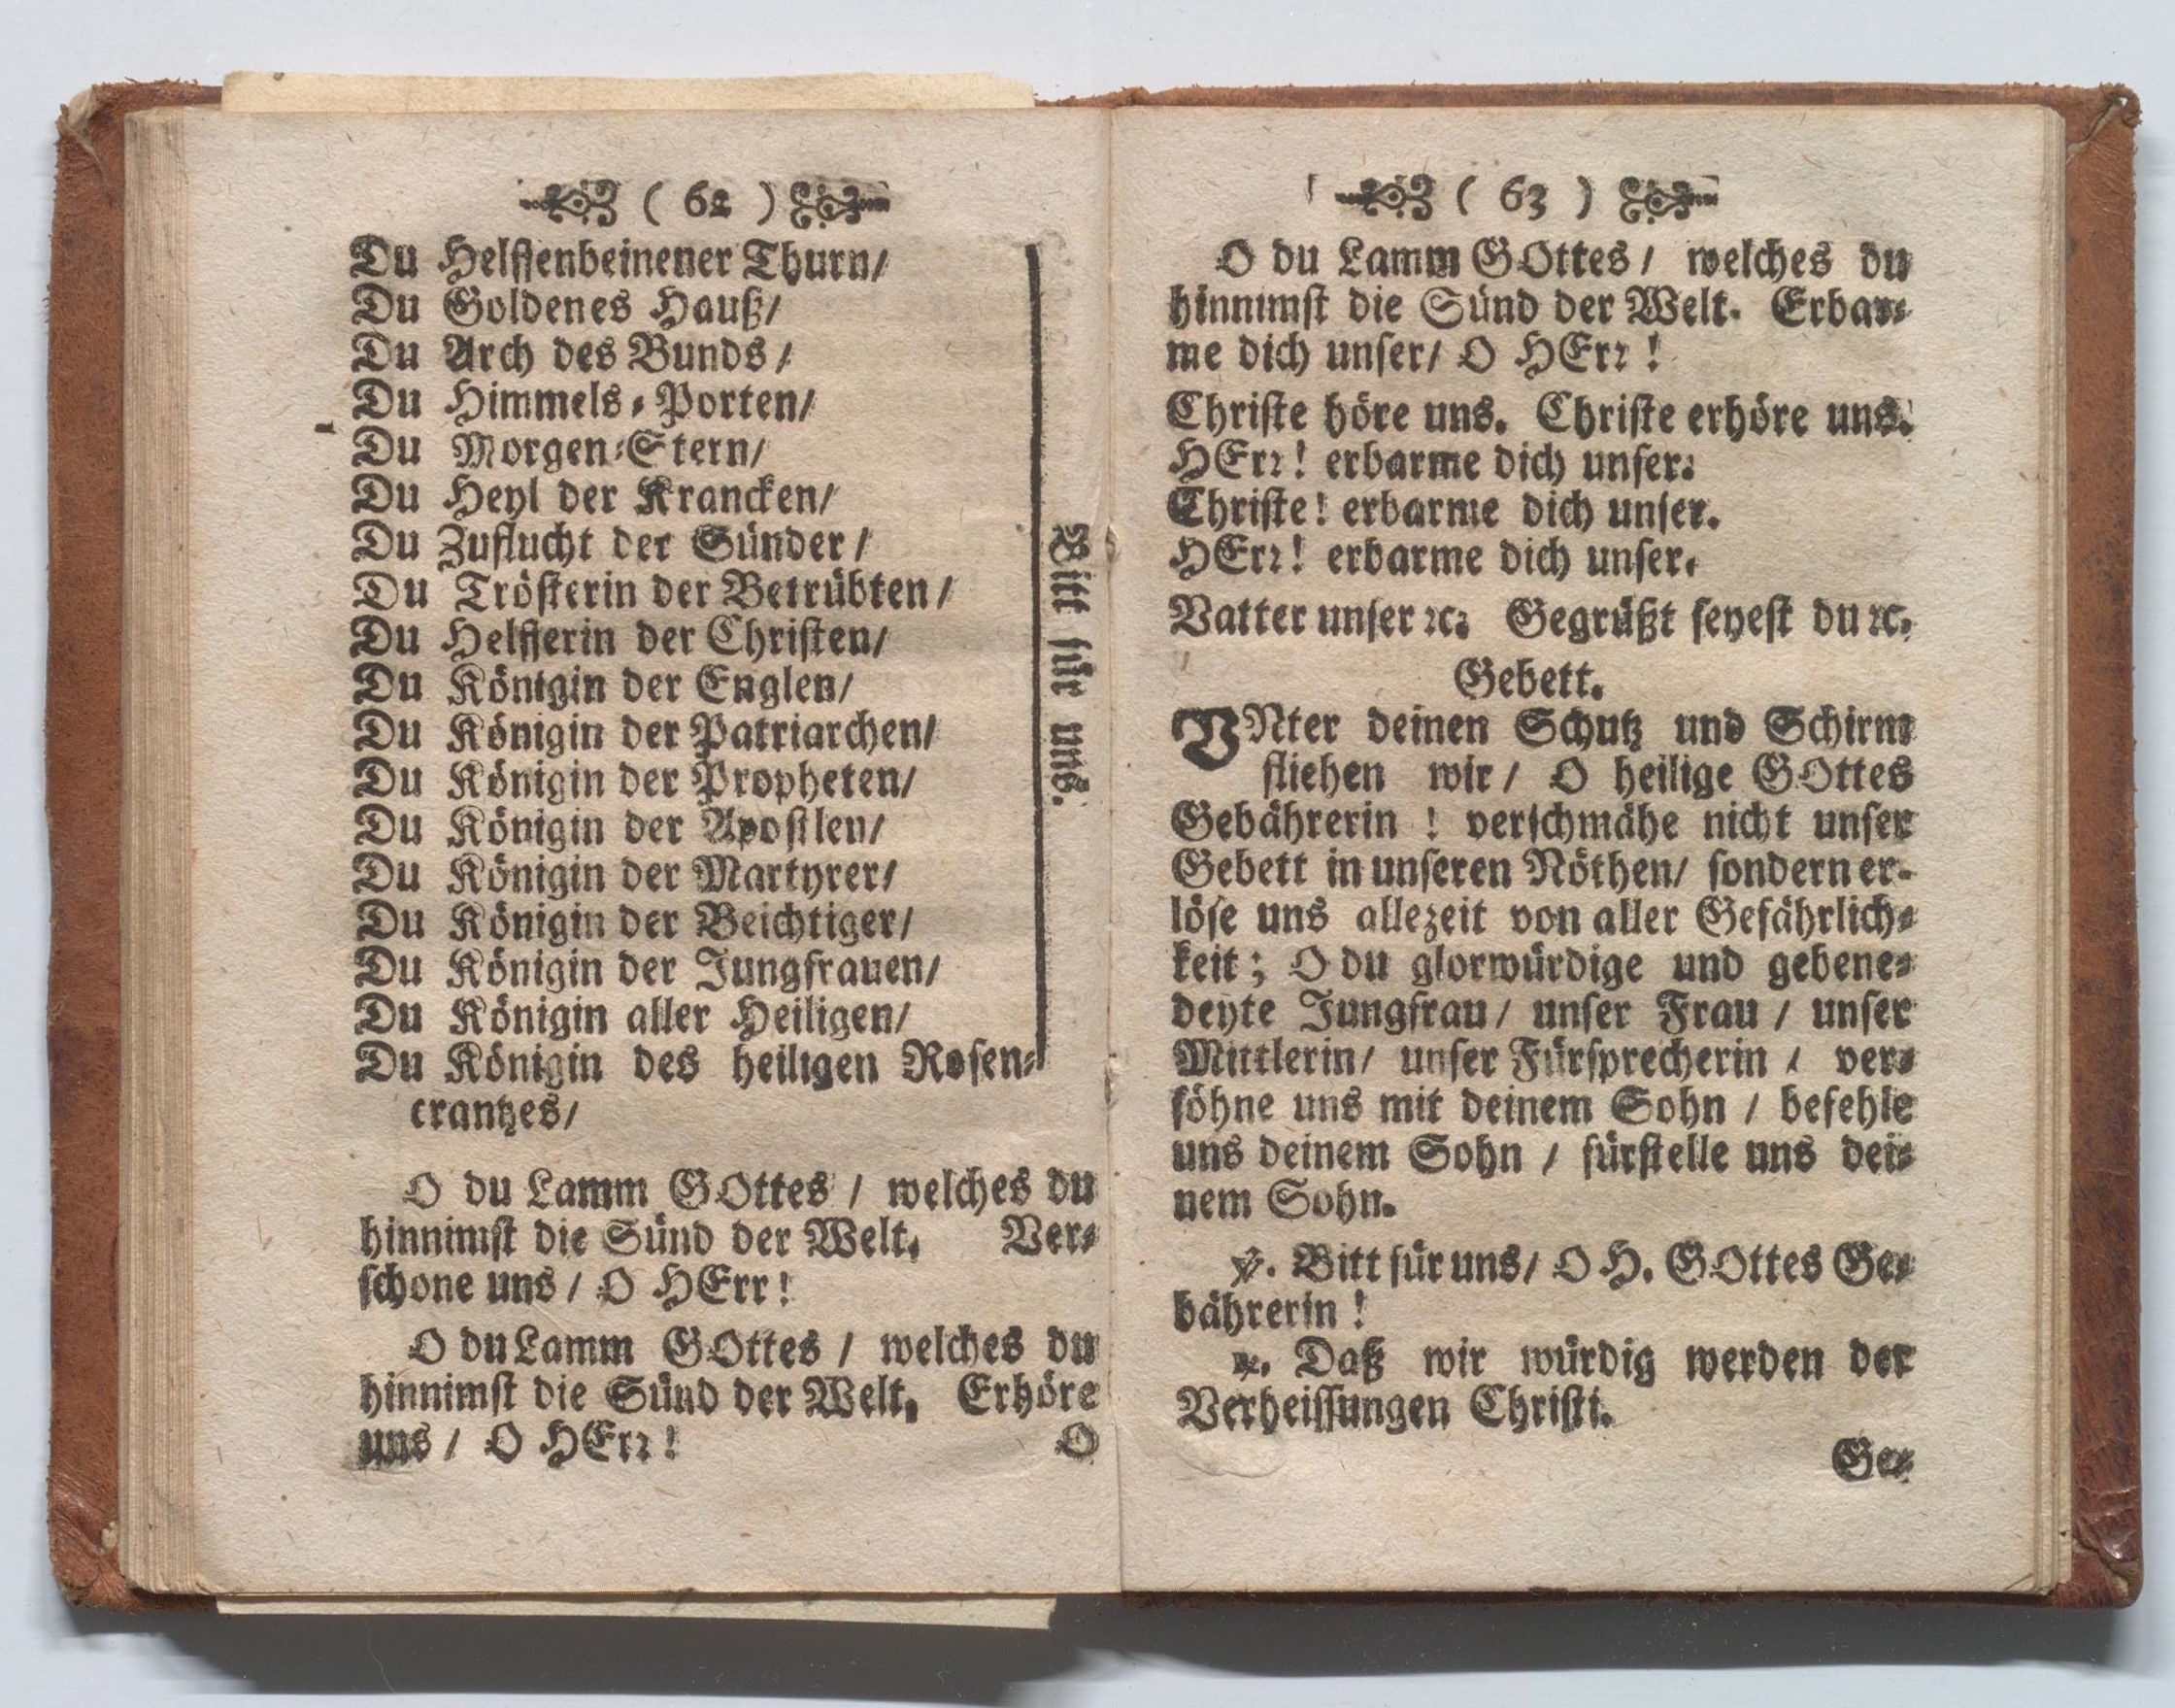 ( 62 )
Du Helffenbeinener Thurn/
Du Goldenes Hauß/
Du Arch des Bunds/
Du Himmels-Porten/
Du Morgen-Stern/
Du Heyl der Krancken/
Du Zuflucht der Sünder/
Du Trösterin der Betrübten/
Du Helfferin der Christen/
Du Königin der Englen/
Du Königin der Patriarchen/
Du Königin der Propheten/
Du Königin der Apostlen/
Du Königin der Martyrer/
Du Königin der Beichtiger/
Du Königin der Jungfrauen/
Du Königin aller Heiligen/
Du Königin des heiligen Rosen-
crantzes/
Bitt für uns.
O du Lamm GOttes / welches du
hinnimst die Sünd der Welt. Ver-
schone uns / O HErr!
O du Lamm GOttes / welches du
hinnimst die Sünd der Welt. Erhöre
uns / O HErr!
O
( 63 )
O du Lamm GOttes / welches du
hinnimst die Sünd der Welt. Erbar-
me dich unser/ O HErr!
Christe höre uns. Christe erhöre uns.
HErr! erbarme dich unser.
Christe! erbarme dich unser.
HErr! erbarme dich unser.
Vatter unser ꝛc. Gegrüßt seyest du ꝛc.
Gebett.
VNter deinen Schutz und Schirm
fliehen wir / O heilige GOttes
Gebährerin ! verschmähe nicht unser
Gebett in unseren Nöthen/ sondern er-
löse uns allezeit von aller Gefährlich-
keit; O du glorwürdige und gebene-
deyte Jungfrau / unser Frau / unser
Mittlerin/ unser Fürsprecherin / ver-
söhne uns mit deinem Sohn / befehle
uns deinem Sohn / fürstelle uns dei-
nem Sohn.
℣. Bitt für uns/ O H. GOttes Ge-
bährerin !
℟. Daß wir würdig werden der
Verheissungen Christi.
Ge-